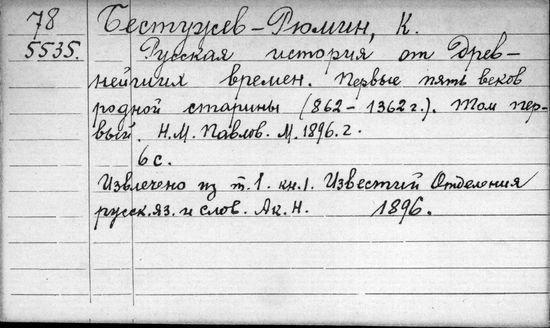 78 Бестужев-Рюмин, К.
5535. Русская история от древ-
нейших времен. Первые пять веков
родной старины (862-1362 г.). Том пер-
вый. Н.М. Павлов. М. 1896. г.
6 с.
Извлечено из т. 1. кн. 1. Известий Отделения
русск. яз. и слов. Ак. Н. 1896.